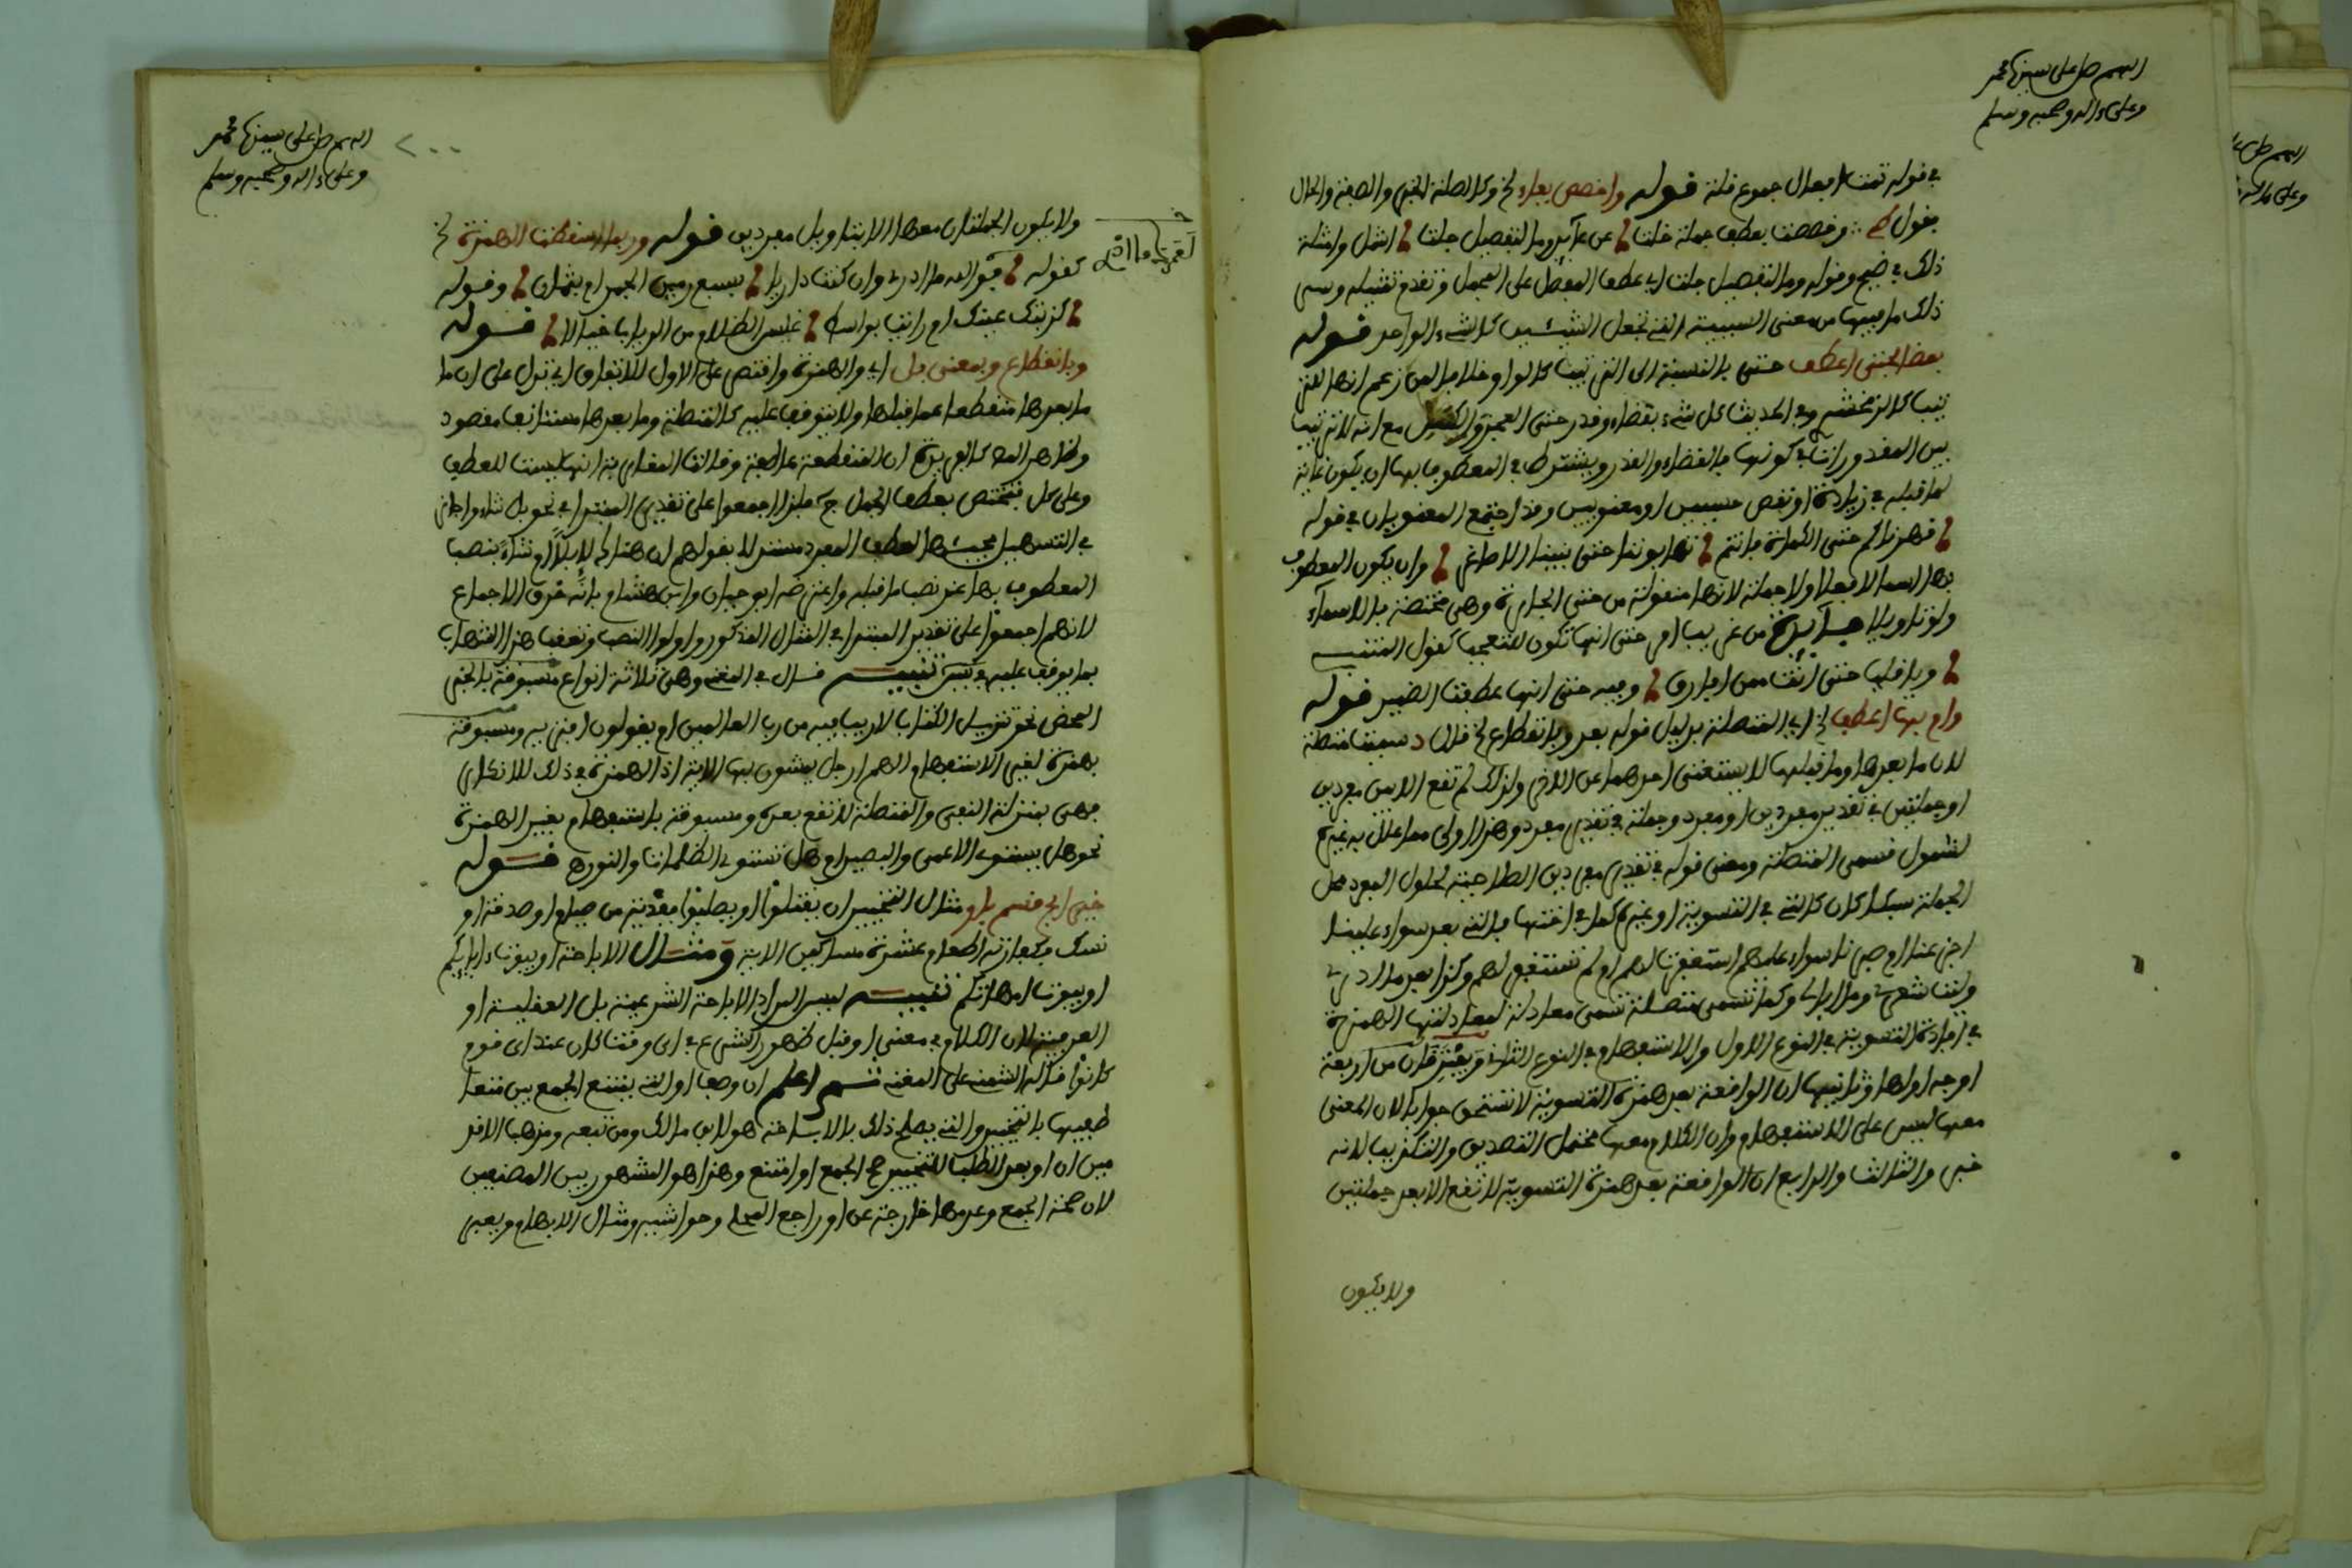 اللهم صل على سيدنا محمد
وعلى ءاله وصحبه وسلم
في قوله ثمت افعال جموع قلة قوله واخصص بفاء الخ وكالصلة الخبر والصفة والحال
يقول كم وخصصت بعطف جملة خلت عن عائد وما لتفصيل جلت اشمل وامثلة
ذلك في ضيح وقوله وما لتفصيل جلت اي عطف المفصل على المجمل وتقدم تمثيله وسر
ذلك ما فيها من معنى السببية التي تجعل الشيئين كالشيء الواحد قوله
بعضا بحتى اعطف حتى بالنسبة الى الترتيب كالواو خلافا لمن زعم انها للتر
تيب كالزمخشري وفي الحديث كل شيء بقضاء وقدر حتى العجز والكيس مع انه لا ترتيب
بين المقدورات في كونها بالقضاء والقدر ويشترط في المعطوف بها ان يكون غاية
لما قبله في زيادة او نقص حسيين او معنويين وقد اجتمع المعنويان في قوله
قهرناكم حتى الكماة فانتم تهابوننا حتى بنينا الاصاغرا وان يكون المعطوف
بها اسما لا فعلا ولا جملة لانها منقولة من حتى الجارة وهي مختصة بالاسماء
ولو تاويلا فايدة من غريب امر حتى انها تكون للتعجب كقول المتنبي
وام بها اعطف الخ اي المتصلة بدليل قوله بعد وبانقطاع الخ قال د سميت متصلة
لان ما بعدها وما قبلها لا يستغنى احدهما عن الاخر ولذلك لم تقع الا بين مفردين
او جملتين في تقدير مفردين او مفرد وجملة في تقدير مفرد وهذا اولى مما علل به غيره
لشمول قسمي المتصلة ومعنى قوله في تقدير مفردين الصلاحية لحلول المفرد محل
الجملة سبكا كان كالتي في التسوية او غيره كما في اختها فالتي بعد سواء علينا
اجزعنا ام صبرنا سواء عليهم استغفرت لهم ام لم تستغفر لهم وكذا بعد ما ادري
وليت شعري وما ابالي وكما تسمى متصلة تسمى معادلة لمعادلتها الهمزة
في افادة التسوية في النوع الاول والاستفهام في النوع الثاني ويفترقان من اربعة
اوجه اولها وثانيها ان الواقعة بعد همزة التسوية لا تستحق جوابا لان المعنى
معها ليس على الاستفهام وان الكلام معها محتمل التصديق والتكذيب لانه
خبر والثالث والرابع ان الواقعة بعد همزة التسوية لا تقع الا بعد جملتين
ولا يكون
اللهم صل على سيدنا محمد
وعلى ءاله وصحبه وسلم
٢٠٠
ولا يكون الجملتان معها الا بتاويل مفردين قوله وربما اسقطت الهمزة الخ
كقوله فوالله ما ادري وان كنت داريا بسبع رمين الجمر ام بثمان وقوله
كذبتك عينك ام رايت بواسط غلس الظلام من الرباب خيالا قوله
وبانقطاع وبمعنى بل اي والهمزة واقتصر على الاول للاتفاق اي تدل على ان ما
ما بعدها منقطع عما قبلها ولا يتوقف عليه كالمتصلة وما بعدها مستانف مقصود
وظاهر المص كالغير ان المنقطعة عاطفة وقالت المغاربة انها ليست للعطف
وعلى كل فتختص بعطف الجمل ح كما اجمعوا على تقدير المبتدا في نحو بل شاء واجاز
في التسهيل مجيئها لعطف المفرد مستدلا بقولهم ان هناك لإبلا ام شاء بنصب
المعطوف بها عند نصب ما قبله واعترضه ابو حيان وابن هشام بانه خرق الاجماع
لانهم اجمعوا على تقدير المبتدا في المثال المذكور واولوا النصب وتعقب هذا الشهاب
بما يوقف عليه في يس تنبيه قال في المغني وهي ثلاثة انواع مسبوقة بالخبر
المحض نحو تنزيل الكتاب لا ريب فيه من رب العالمين ام يقولون افتراه ومسبوقة
بهمزة لغير الاستفهام الهم ارجل يمشون بها الاية اذ الهمزة في ذلك للانكار
فهي بمنزلة النفي والمتصلة لا تقع بعده ومسبوقة باستفهام بغير الهمزة
نحو هل يستوي الاعمى والبصير ام هل تستوي الظلمات والنور قوله
خير ابح قسم باو مثال التخيير ان يقتلوا او يصلبوا ففدية من صيام او صدقة او
نسك فكفارته اطعام عشرة مساكين الاية ومثال الاباحة او بيوت ءابائكم
او بيوت امهاتكم تنبيه ليس المراد الاباحة الشرعية بل العقلية او
العرفية لان الكلام في معنى او قبل ظهور الشرع في اي وقت كان عند اي قوم
كانوا قاله الشمني على المغني ثم اعلم ان وصف او التي يمتنع الجمع بين متعا
طفيها بالتخيير والتي يصلح ذلك بالاباحة هو لابن مالك ومن تبعه ومذهب الاقد
مين ان او بعد الطلب للتخيير صح الجمع او امتنع وهذا هو المشهور بين المصنفين
لان صحة الجمع وعدمها خارجة عن او راجع المحلي وحواشيه ومثال الابهام ويعبر